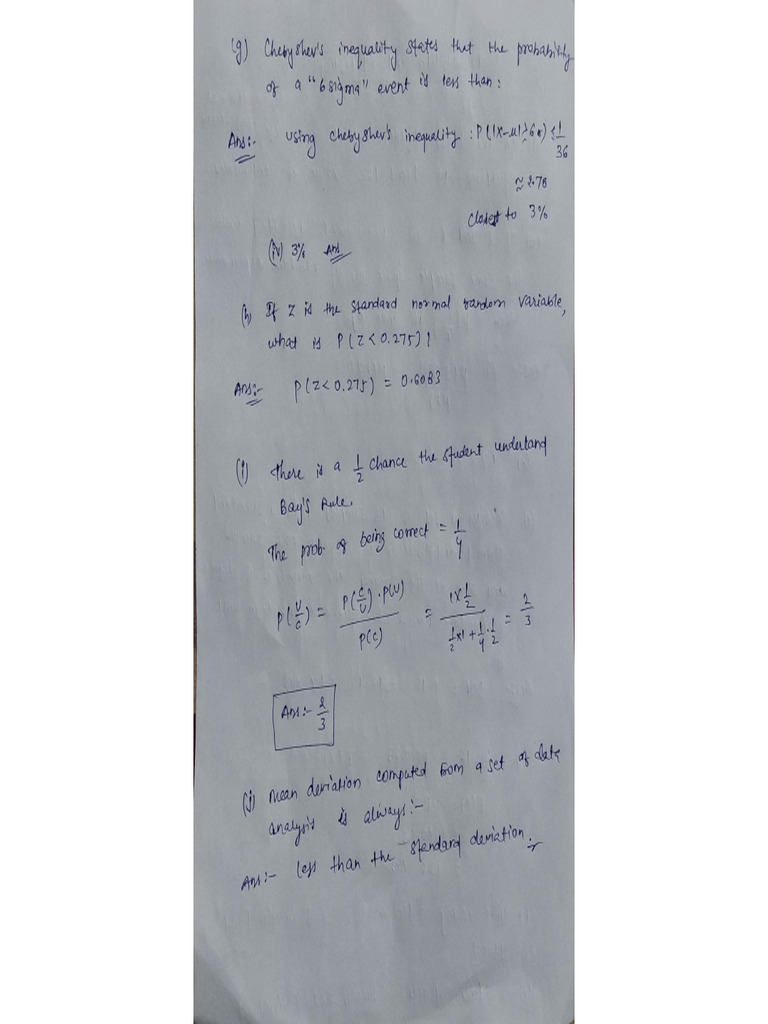 (g) Chebyshev's inequality states that the probability
of a "6 sigma" event is less than :
Ans:- using chebyshev's inequality : P(|X-μ|≥6σ) ≤ 1/36
≈ 2.78
closest to 3%
(iv) 3% Ans
(h) If Z is the standard normal random variable,
what is P(Z<0.275)?
Ans:- P(Z<0.275) = 0.6083
(i) There is a 1/2 chance the student understand
Bay's Rule.
The prob. of being correct = 1/4
P(U/C) = P(C/U)·P(U) / P(C) = 1×1/2 / 1/2×1+1/4·1/2 = 2/3
Ans:- 2/3
(j) Mean deviation computed from a set of data
analysis is always:-
Ans:- less than the standard deviation.